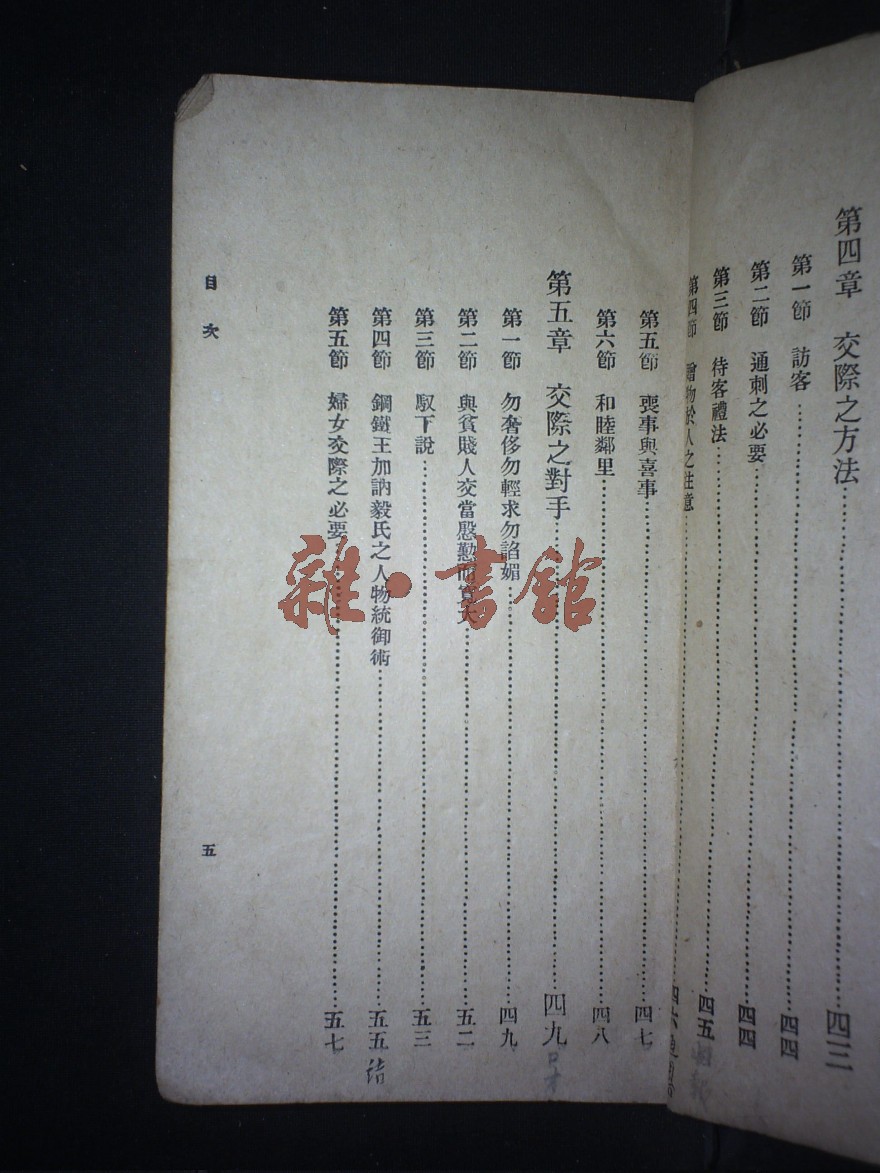 第四章 交際之方法……四三
第一節 訪客……四四
第二節 通刺之必要……四四
第三節 待客禮法……四五
第四節 贈物於人之注意……四六
第五節 喪事與喜事……四七
第六節 和睦鄰里……四八
第五章 交際之對手……四九
口才
第一節 勿奢侈勿輕求勿諂媚……四九
第二節 與貧賤人交當慇懃而……五二
第三節 馭下說……五三
第四節 鋼鐵王加訥毅氏之人物統御術……五五
第五節 婦女交際之必要……五七
目次
五
雜·書館